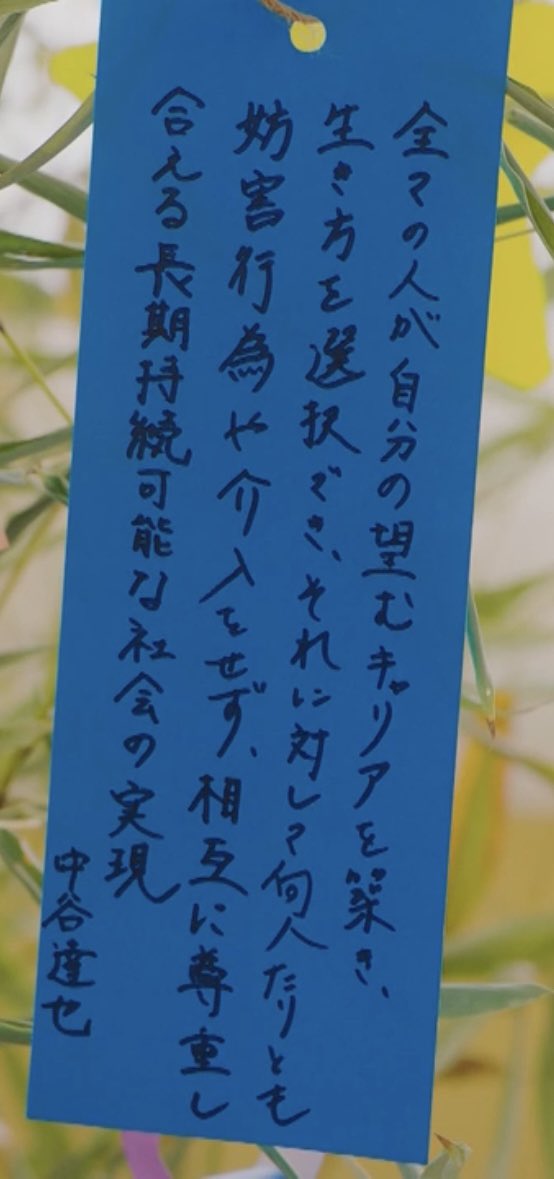 全ての人が自分の望むキャリアを築き、
生き方を選択でき、それに対して何人たりとも
妨害行為や介入をせず、相互に尊重し
合える長期持続可能な社会の実現
中谷達也